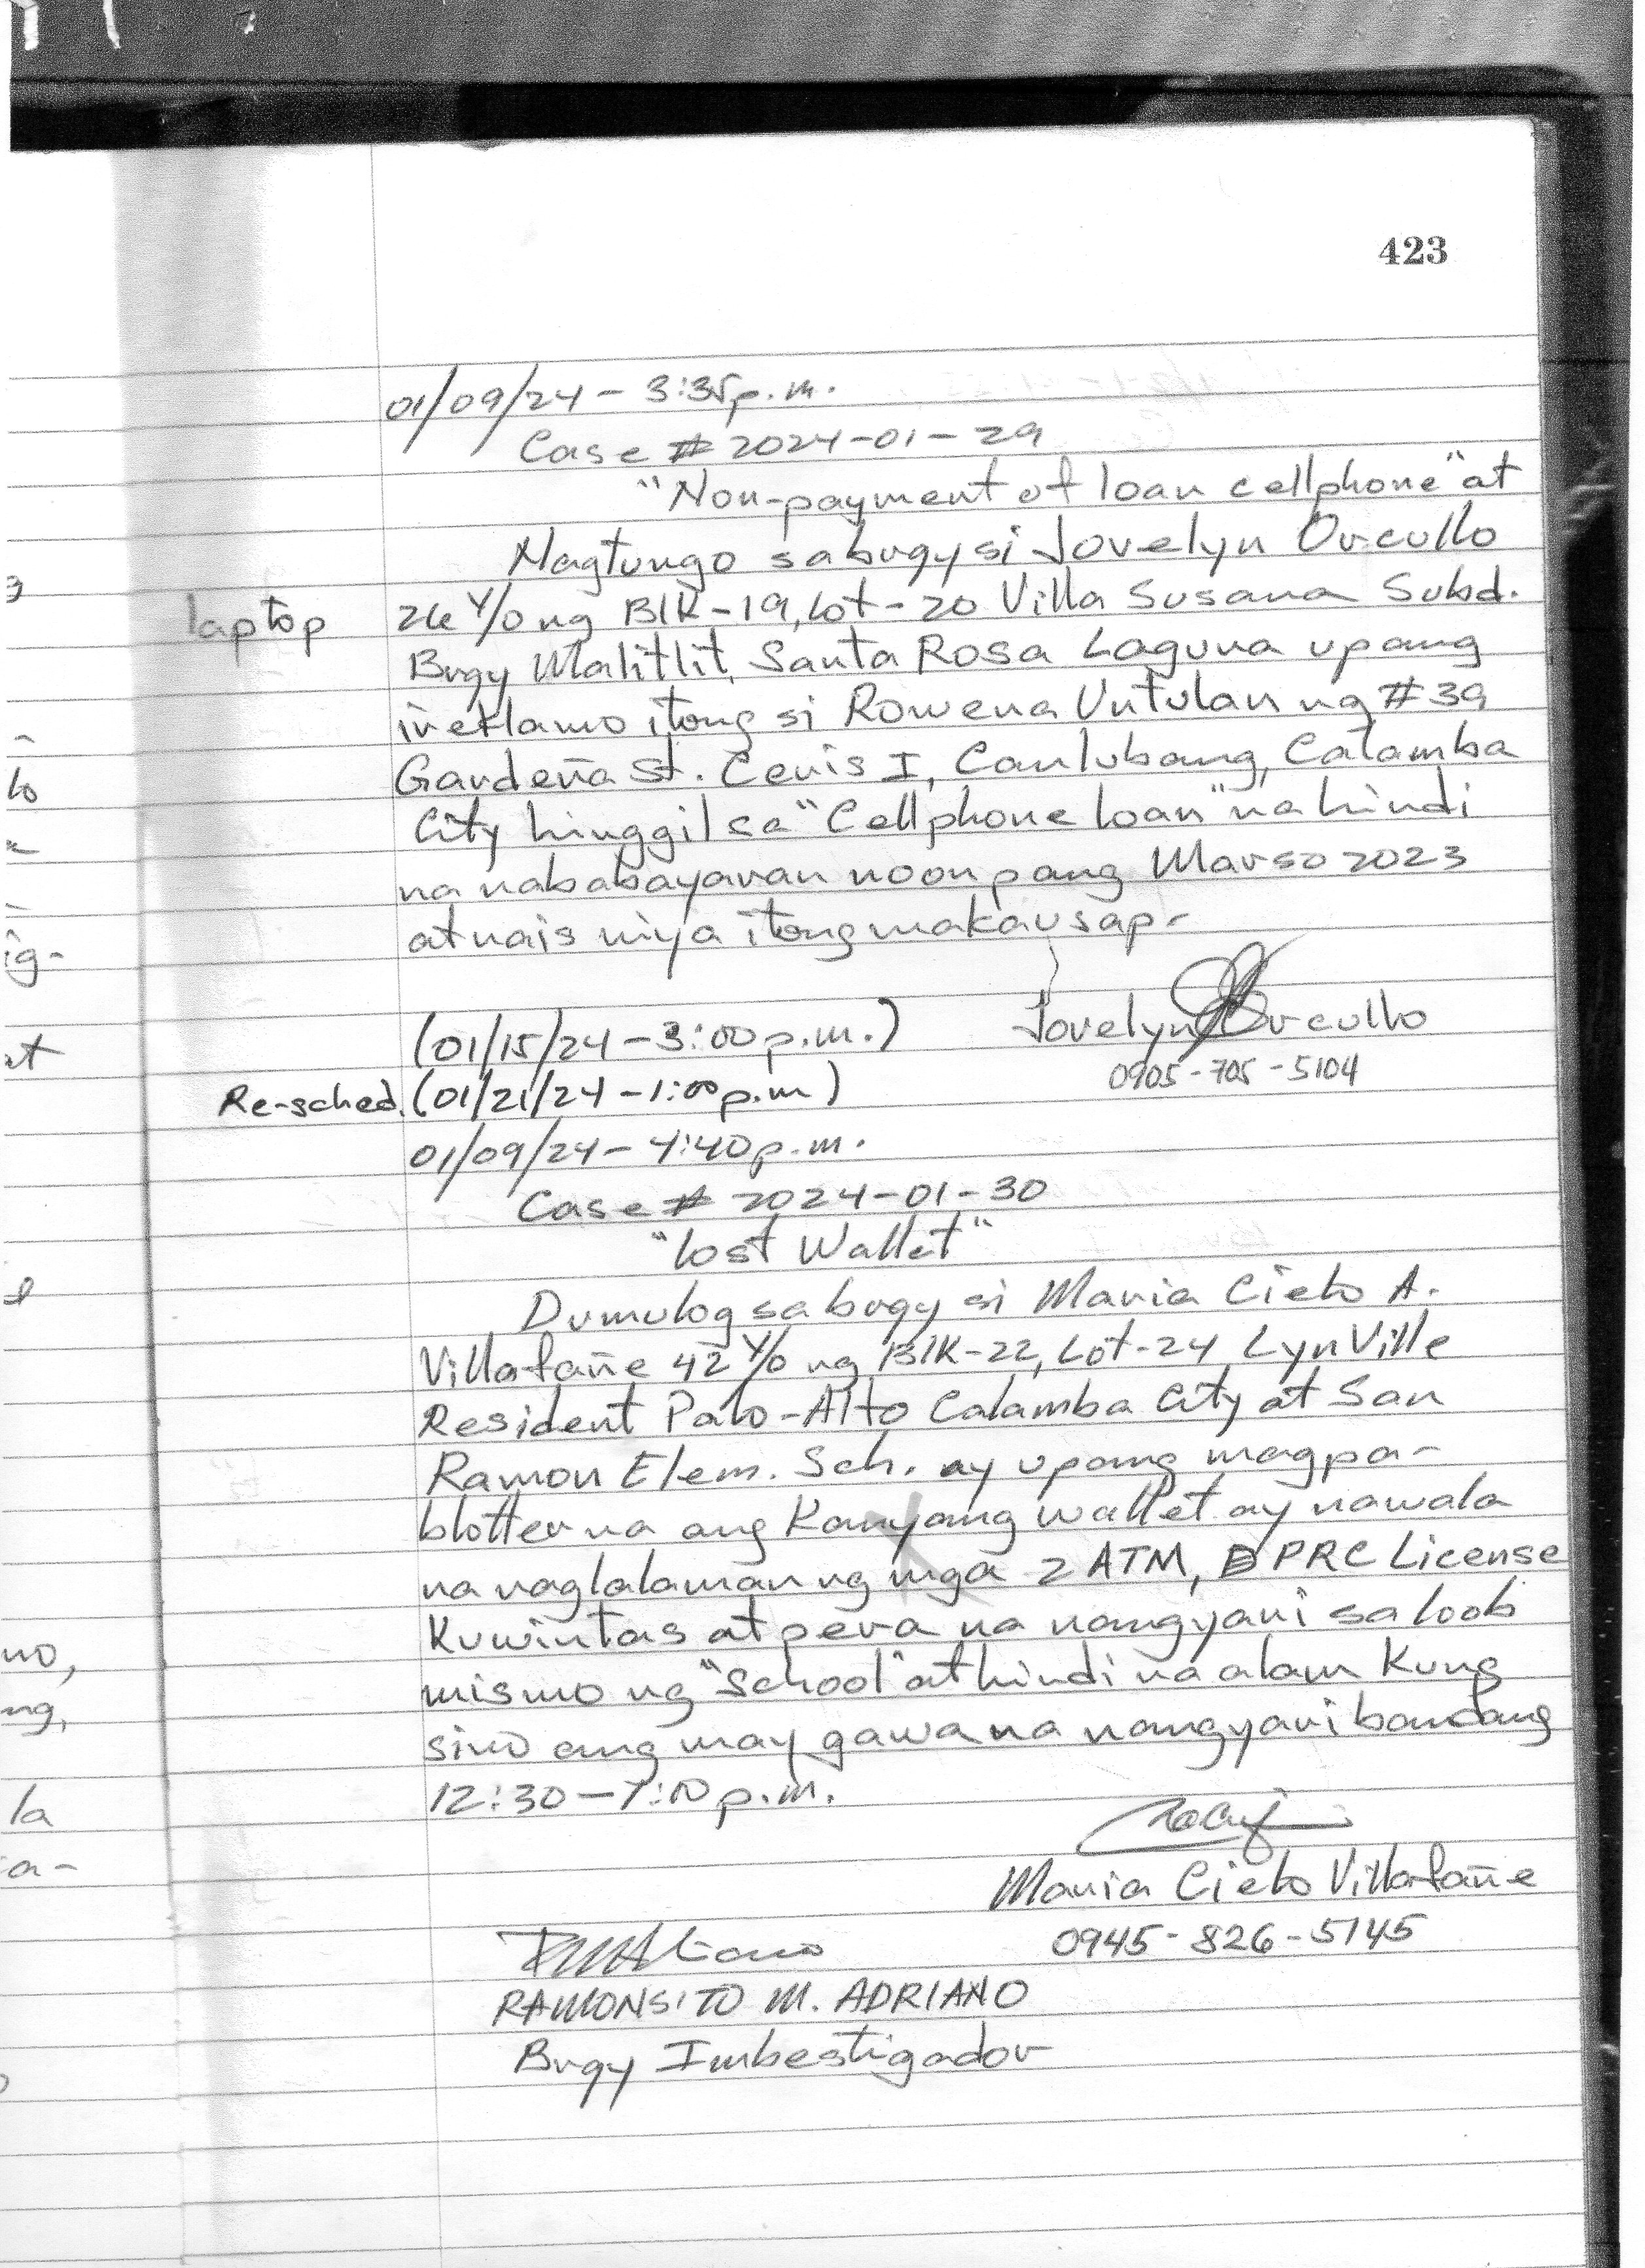 423
01/09/24 - 3:35 p.m.
Case # 2024-01-29
"Non-payment of loan cellphone" at
Nagtungo sa brgy si Jovelyn Orcullo
laptop
26 y/o ng Blk-19, Lot-20 Villa Susana Subd.
Brgy Malitlit, Santa Rosa Laguna upang
ireklamo itong si Rowena Untulan ng # 39
Gardeña St. Ceris I, Canlubang, Calamba
City hinggil sa "Cellphone loan" na hindi
na nababayaran noon pang Marso 2023
at nais niya itong makausap-
(01/15/24 - 3:00 p.m.)
Jovelyn Orcullo
0905-705-5104
Re-sched. (01/21/24 - 1:00 p.m)
01/09/24 - 4:40 p.m.
Case # 2024-01-30
"Lost Wallet"
Dumulog sa brgy si Maria Cielo A.
Villafañe 42 y/o ng Blk-22, Lot-24 Lyn Ville
Resident Palo-Alto Calamba City at San
Ramon Elem. Sch. ay upang magpa-
blotter na ang Kanyang wallet ay nawala
na naglalaman ng mga 2 ATM, PRC License
Kuwintas at pera na nangyari sa loob
mismo ng "School" at hindi na alam Kung
sino ang may gawa na nangyari bandang
12:30 - 1:00 p.m.
Maria Cielo Villafañe
0945-826-5145
RAMONSITO M. ADRIANO
Brgy Imbestigador